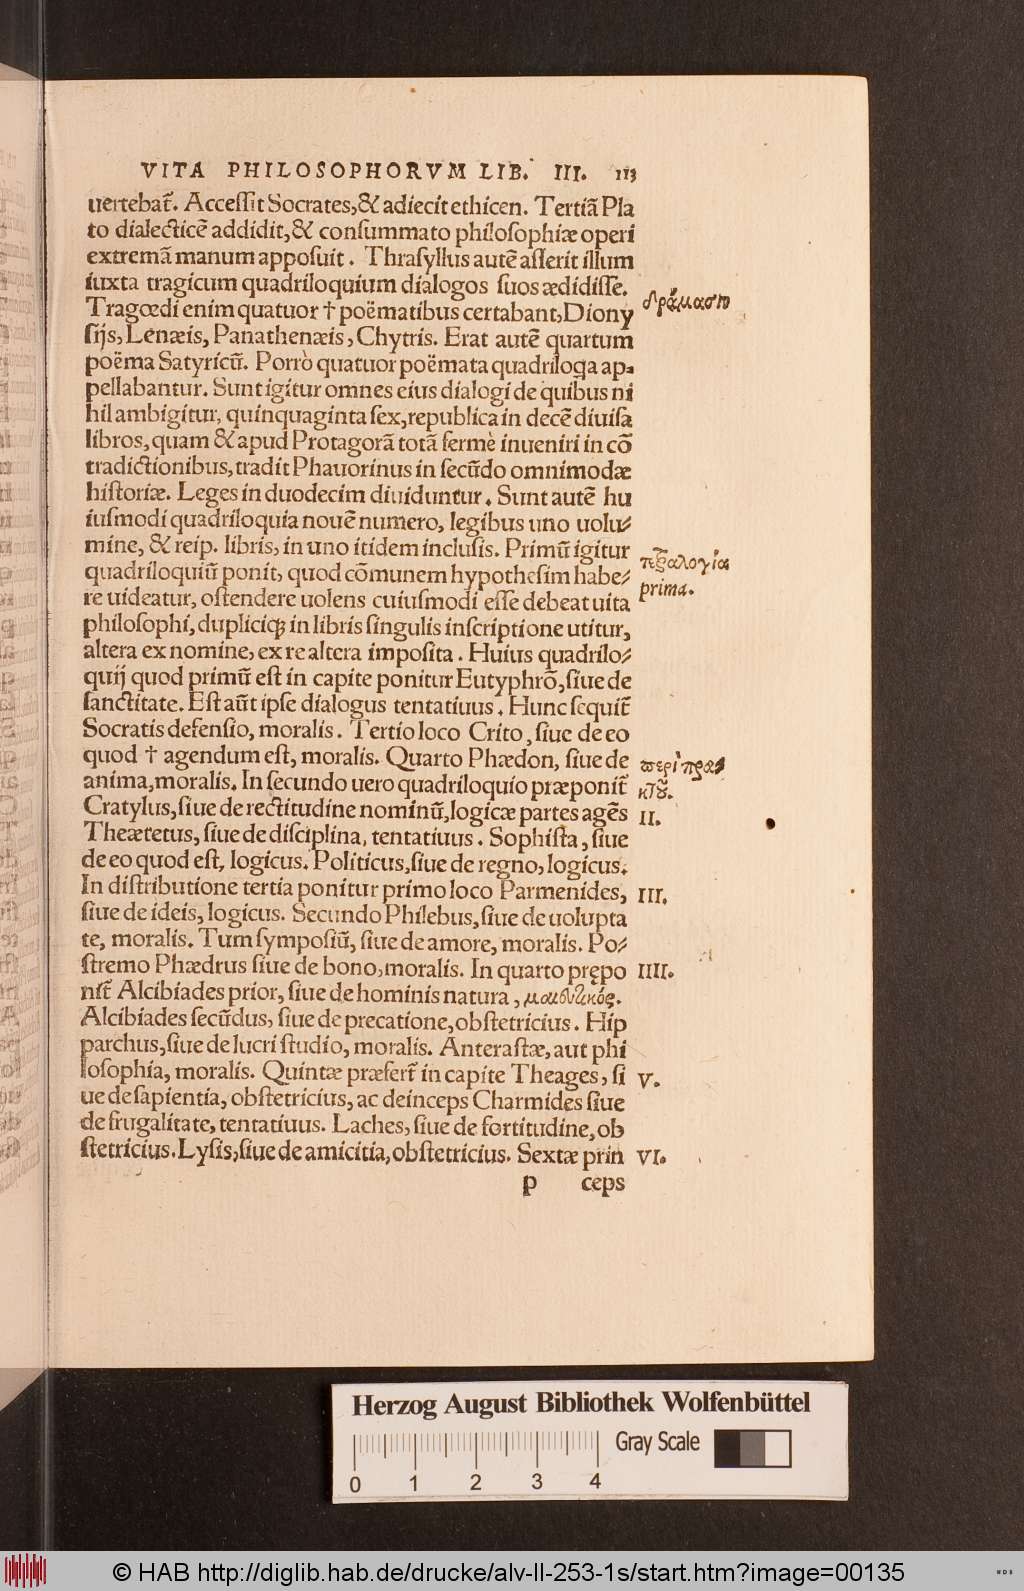 VITA PHILOSOPHORVM LIB. III. 113
uertebat̃. Acceſſit Socrates, & adiecit ethicen. Tertiã Pla
to dialecticẽ addidit, & conſummato philoſophiæ operi
extremã manum appoſuit. Thraſyllus autẽ aſſerit illum
iuxta tragicum quadriloquium dialogos ſuos ædidiſſe.
Tragœdi enim quatuor † poëmatibus certabant, Diony
ſijs, Lenæis, Panathenæis, Chytris. Erat autẽ quartum
poëma Satyricũ. Porrò quatuor poëmata quadriloga ap-
pellabantur. Sunt igitur omnes eius dialogi de quibus ni
hil ambigitur, quinquaginta ſex, republica in decẽ diuiſa
libros, quam & apud Protagorã totã fermè inueniri in cõ
tradictionibus, tradit Phauorinus in ſecũdo omnimodæ
hiſtoriæ. Leges in duodecim diuiduntur. Sunt autẽ hu
iuſmodi quadriloquia nouẽ numero, legibus uno uolu-
mine, & reip. libris, in uno itidem incluſis. Primũ igitur
quadriloquiũ ponit, quod cõmunem hypotheſim habe-
re uideatur, oſtendere uolens cuiuſmodi eſſe debeat uita
philoſophi, dupliciqȝ in libris ſingulis inſcriptione utitur,
altera ex nomine, ex re altera impoſita. Huius quadrilo-
quij quod primũ eſt in capite ponitur Eutyphrõ, ſiue de
ſanctitate. Eſt aũt ipſe dialogus tentatiuus. Hunc ſequit̃
Socratis defenſio, moralis. Tertio loco Crito, ſiue de eo
quod † agendum eſt, moralis. Quarto Phædon, ſiue de
anima, moralis. In ſecundo uero quadriloquio præponit̃
Cratylus, ſiue de rectitudine nominũ, logicæ partes agẽs
Theætetus, ſiue de diſciplina, tentatiuus. Sophiſta, ſiue
de eo quod eſt, logicus. Politicus, ſiue de regno, logicus.
In diſtributione tertia ponitur primo loco Parmenides,
ſiue de ideis, logicus. Secundo Philebus, ſiue de uolupta
te, moralis. Tum ſympoſiũ, ſiue de amore, moralis. Po-
ſtremo Phædrus ſiue de bono, moralis. In quarto prępo
nit̃ Alcibiades prior, ſiue de hominis natura, μαιευτικός.
Alcibiades ſecũdus, ſiue de precatione, obſtetricius. Hip
parchus, ſiue de lucri ſtudio, moralis. Anteraſtæ, aut phi
loſophia, moralis. Quintæ præfert̃ in capite Theages, ſi
ue de ſapientia, obſtetricius, ac deinceps Charmides ſiue
de frugalitate, tentatiuus. Laches, ſiue de fortitudine, ob
ſtetricius. Lyſis, ſiue de amicitia, obſtetricius. Sextæ prin
p ceps
δράμασιν
τετραλογία
prima.
περὶ πρα-
κτοῦ.
II.
III.
IIII.
V.
VI.
Herzog August Bibliothek Wolfenbüttel
Gray Scale
0 1 2 3 4
© HAB http://diglib.hab.de/drucke/alv-ll-253-1s/start.htm?image=00135